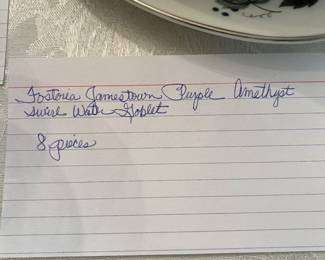 Fostoria Jamestown Purple Amethyst
Swirl Water Goblet
8 pieces